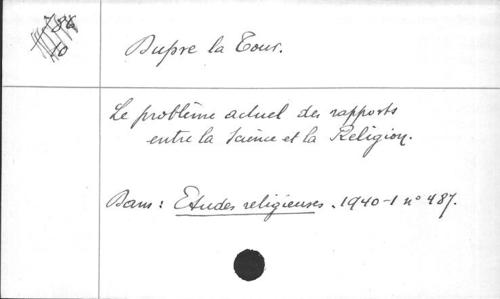 Dupre la Tour.
Le problème actuel des rapports
entre la Science et la Religion.
Dans : Etudes religieuses. 1940-1 n° 487.